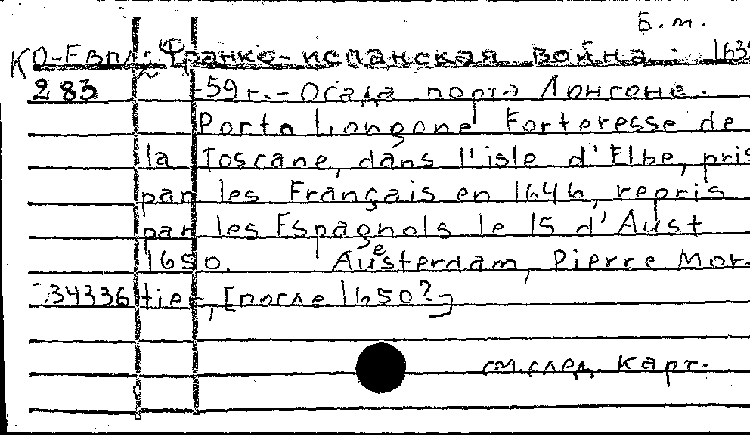 Б.м.
КО-Евпл: Франко-испанская война. 1635
283 -59 г. - Осада порто Лонгоне.
Porto Longone Forteresse de
la Toscane, dans l'isle d'Elbe, pris
par les Français en 1646, repris
par les Espagnols le 15 d'Aust
1650. Amsterdam, Pierre Mor-
34336 tier, [после 1650?]
см.след. карт.